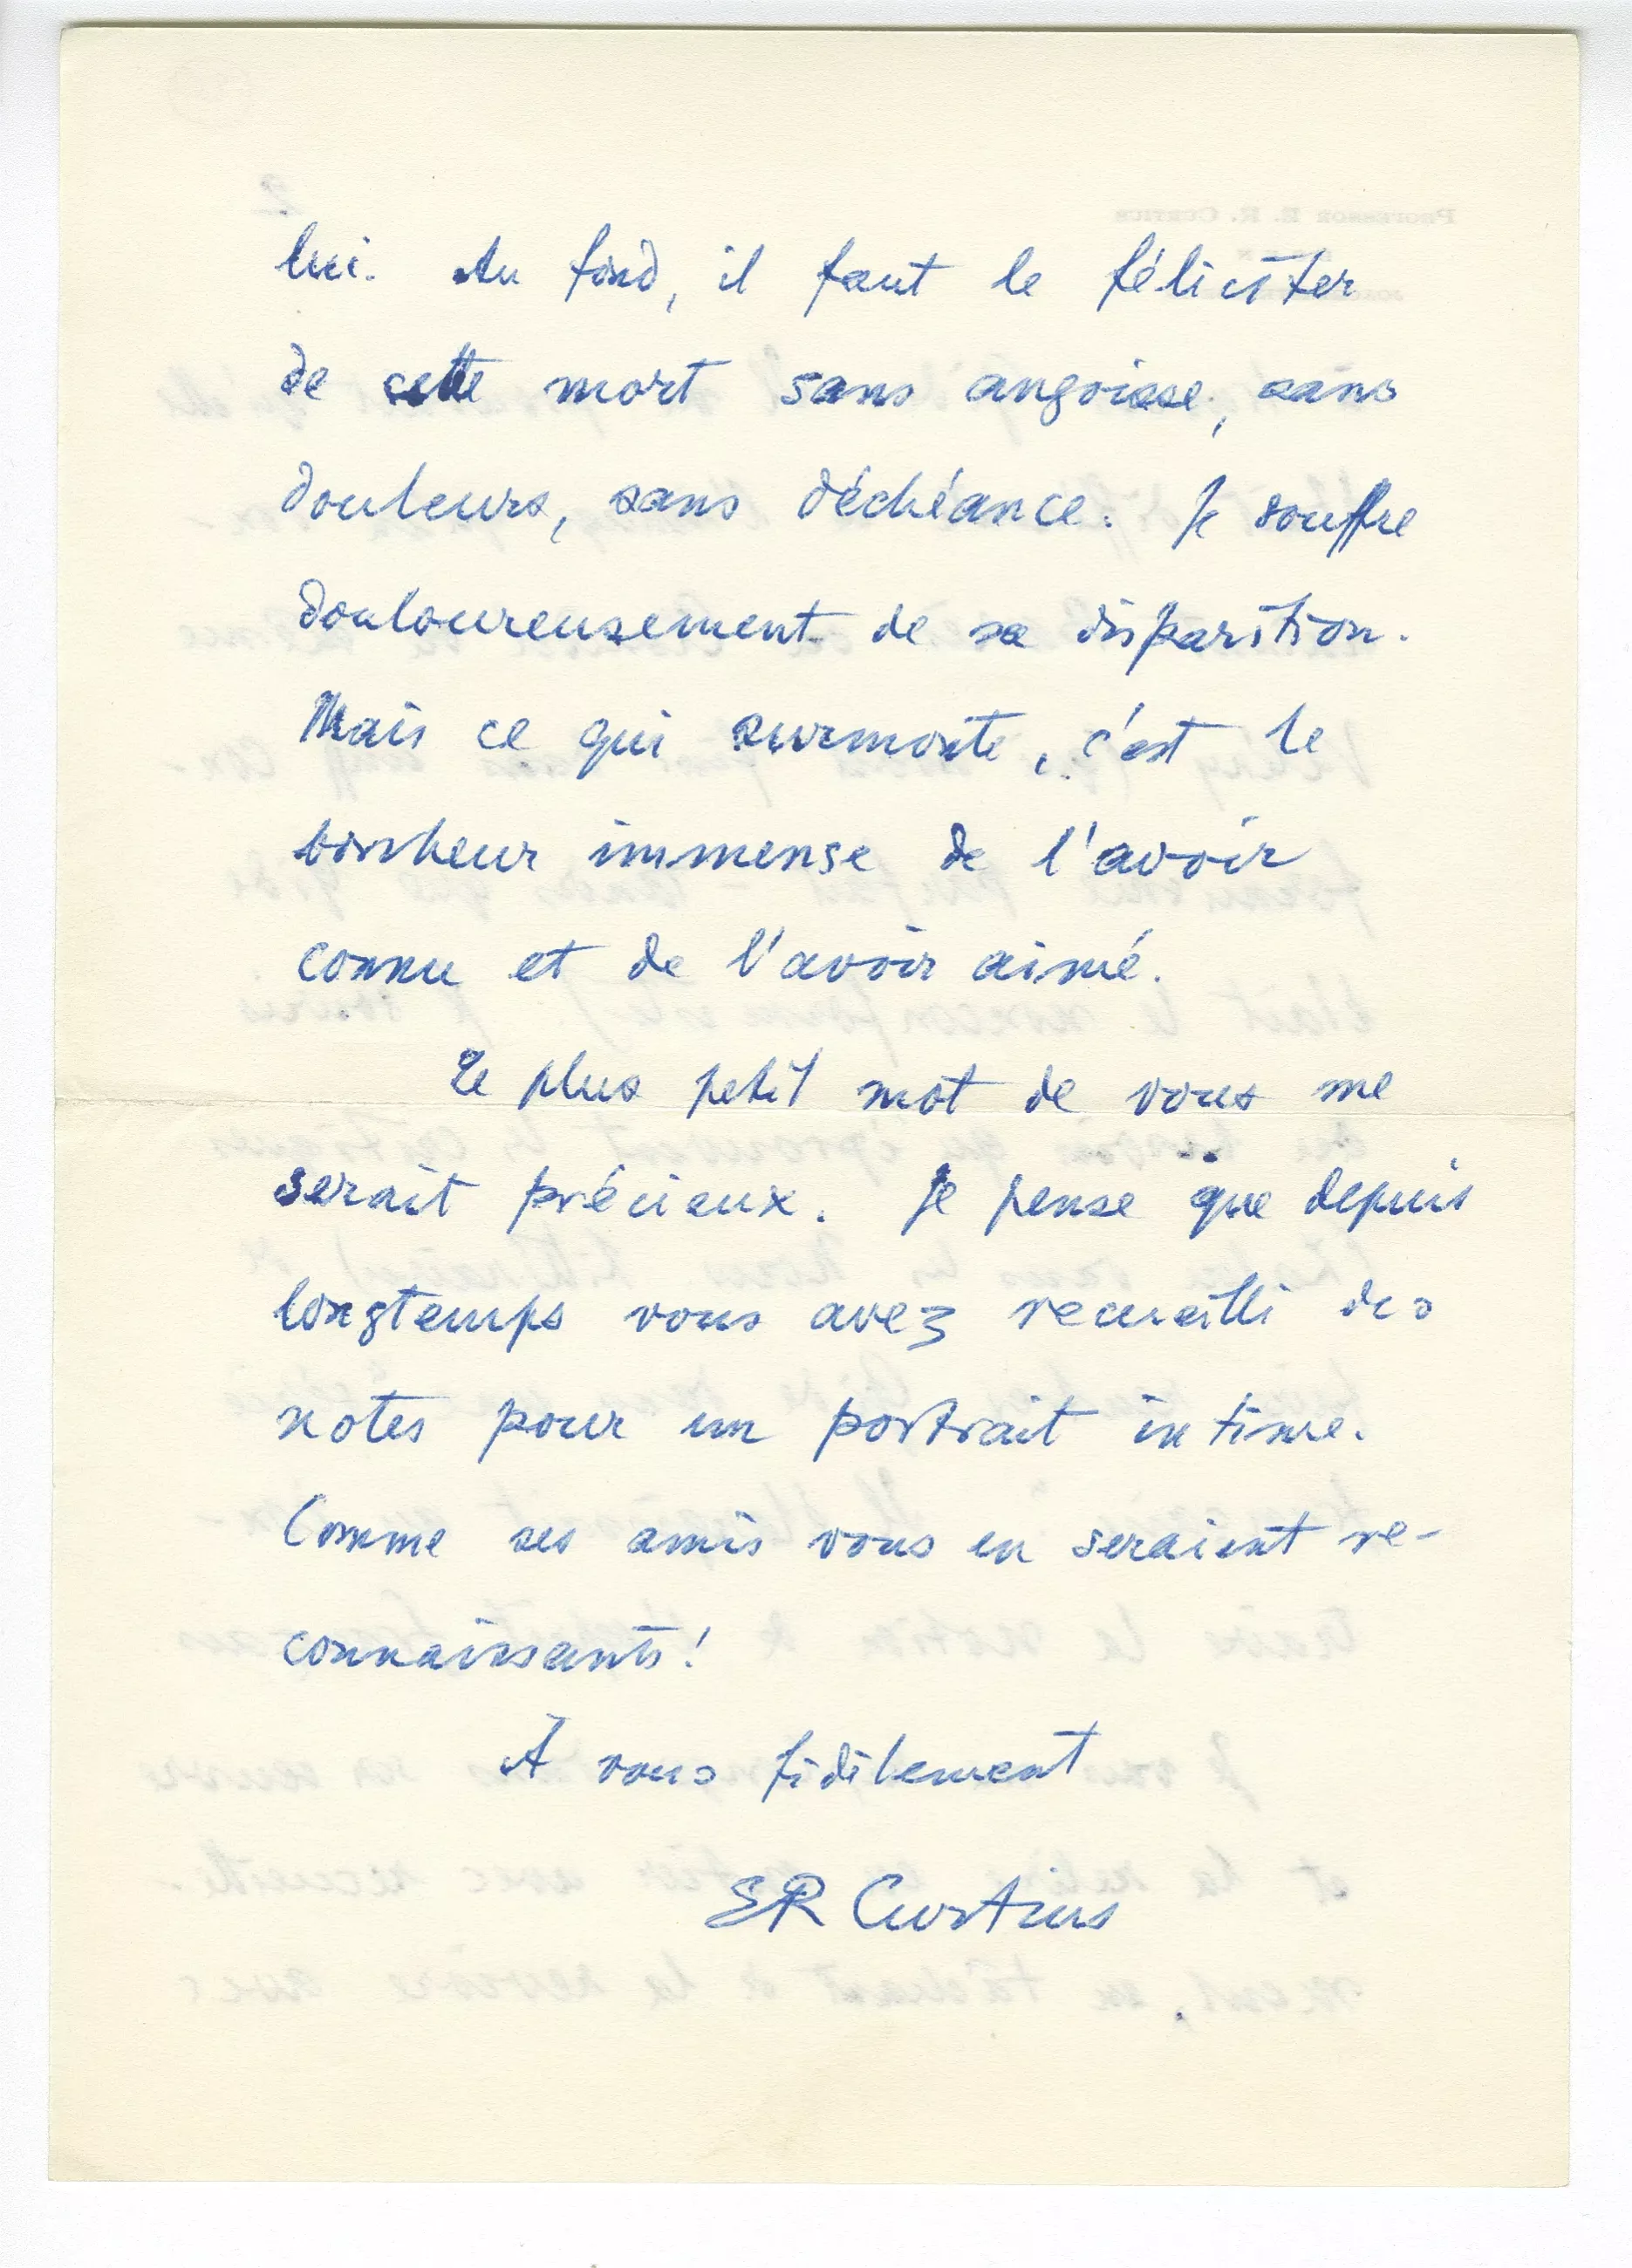 lui. Au fond, il faut le féliciter
de cette mort sans angoisse, sans
douleurs, sans déchéance. Je souffre
douloureusement de sa disparition.
Mais ce qui surmonte, c'est le
bonheur immense de l'avoir
connu et de l'avoir aimé.
Le plus petit mot de vous me
serait précieux. Je pense que depuis
longtemps vous avez recueilli des
notes pour un portrait intime.
Comme ses amis vous en seraient re-
connaissants!
À vous fidèlement
ER Curtius